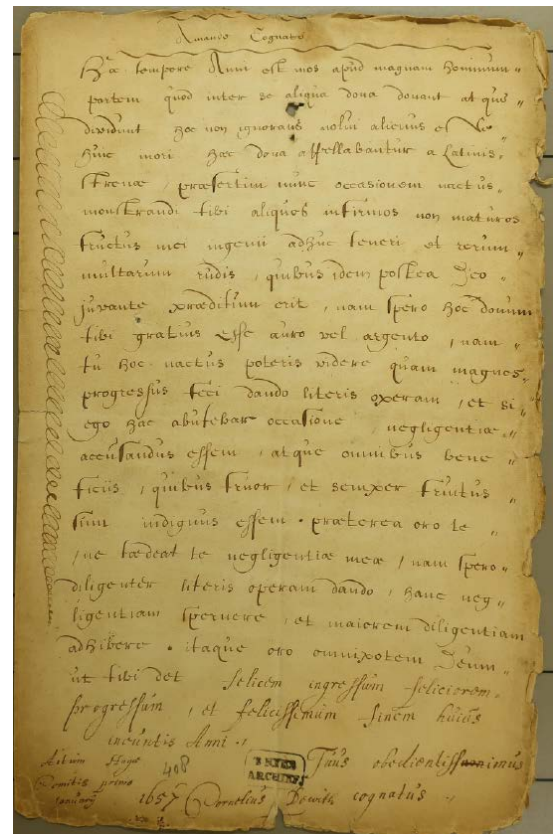 Amando Cognato
Hoc tempore Anni est mos apud magnam hominum
partem quod inter se aliqua dona donant atque
dividunt hoc non ignorans nolui alienus esse
hunc mori. Hæc dona appellabantur a Latinis
strenæ, præsertim nunc occasionem nactus
monstrandi tibi aliquos infirmos non maturos
fructus mei ingenii adhuc teneri et rerum
multarum rudis, quibus idem postea Deo
juvante præditum erit, nam spero hoc donum
tibi gratius esse auro vel argento, nam
tu hoc nactus poteris videre quam magnos
progressus feci dando literis operam, et si
ego hac abutebar occasione, negligentiæ
accusandus essem, atque omnibus bene
ficiis, quibus fruor, et semper fruitus
sum indignus essem. præterea oro te
, ne tædeat te negligentiæ meæ, nam spero
diligenter literis operam dando, hanc neg
ligentiam spernere, et maiorem diligentiam
adhibere. itaque oro omnipotem Deum
ut tibi det felicem ingressum feliciorem
progressum, et felicissimum finem huius
ineuntis Anni.
Tuus obedientissimus
Hagæ
Comitis primo
January 1657 Cornelius Dewith cognatus
408
ARCHIEF